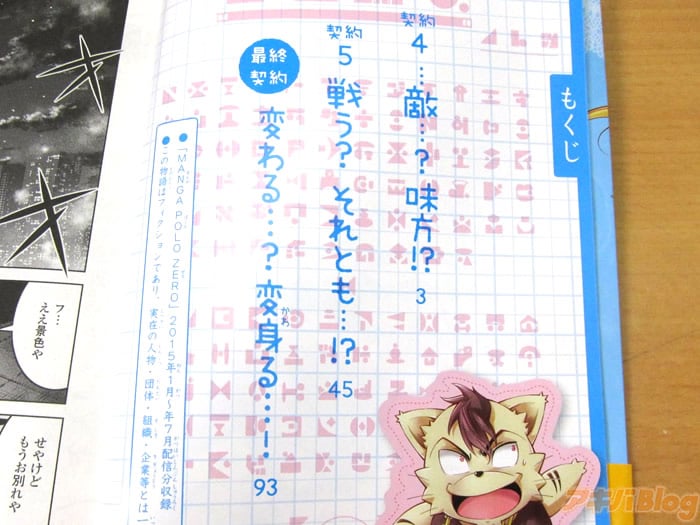 もくじ
契約
4…敵…?味方!?
3
契約
5 戦う?それとも…!?
45
最終
契約
変わる…?変身る……!
かわ
93
●「MANGA POLO ZERO」2015年1月～年7月配信分収録
●この物語はフィクションであり、実在の人物・団体・組織・企業等とは一
フ…
ええ景色や
せやけど
もうお別れや
アキバBlog